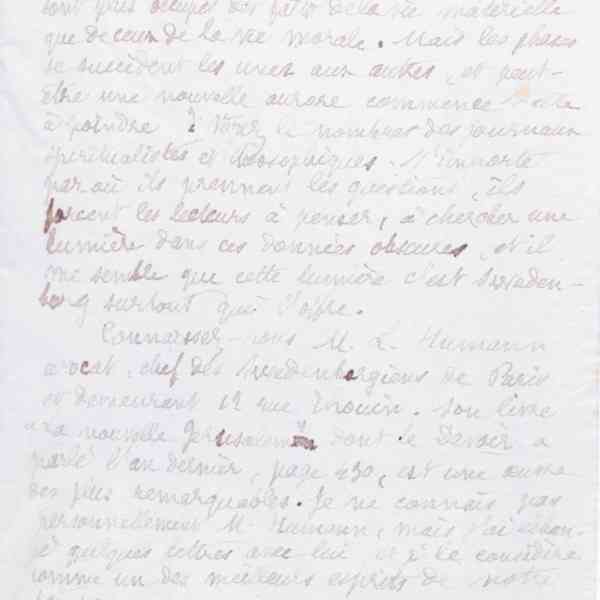 sont plus occupés des faits de la vie matérielle
que de ceux de la vie morale. Mais les phases
se succèdent les unes aux autres, et peut-
être une nouvelle aurore commence-t-elle
à poindre à voir le nombre des journaux
spiritualistes et théosophiques. N'importe
par où ils prennent les questions, ils
forcent les lecteurs à penser, à chercher une
lumière dans ces données obscures, et il
me semble que cette lumière c'est Sweden-
borg surtout qui l'offre.
Connaissez-vous M. L. Humann
avocat, chef des Swedenborgiens de Paris
et demeurant 12 rue Thouin. Son livre
La nouvelle Jérusalem dont le Devoir a
parlé l'an dernier, page 430, est une œuvre
des plus remarquables. Je ne connais pas
personnellement M. Humann, mais j'ai échan-
gé quelques lettres avec lui et je le considère
comme un des meilleurs esprits de notre